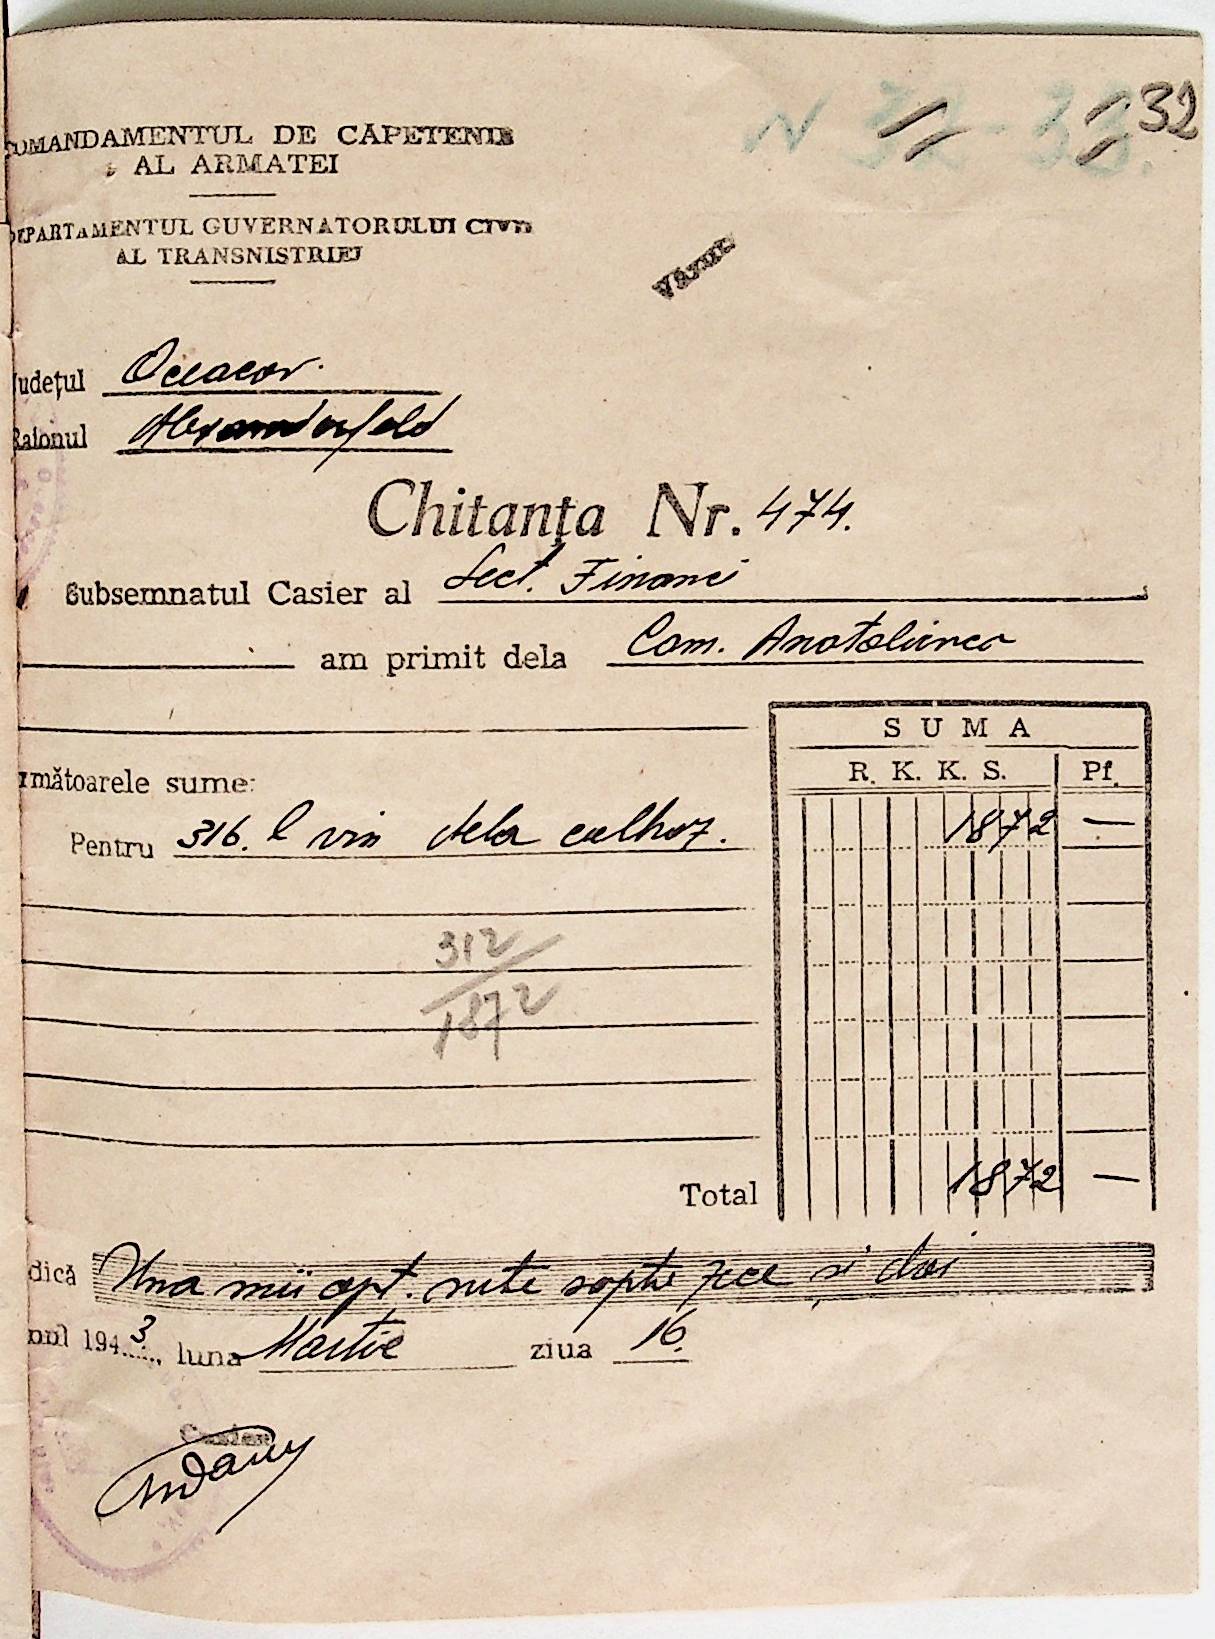 N 32-33. 32
COMANDAMENTUL DE CAPETENIE
AL ARMATEI
DEPARTAMENTUL GUVERNATORULUI CIVIL
AL TRANSNISTRIEI
Județul Oceacov.
Raionul Alexanderfeld
Chitanța Nr. 474.
Subsemnatul Casier al Sect. Financi
am primit dela Com. Anatolievca
rmătoarele sume:
SUMA
R. K. K. S. Pf.
Pentru 316. l vin dela colhoz. 1872 —
312
1872
Total 1872 —
dică Una mii opt. sute șapte zece și doi
nul 1943, luna Martie ziua 16.
Casier